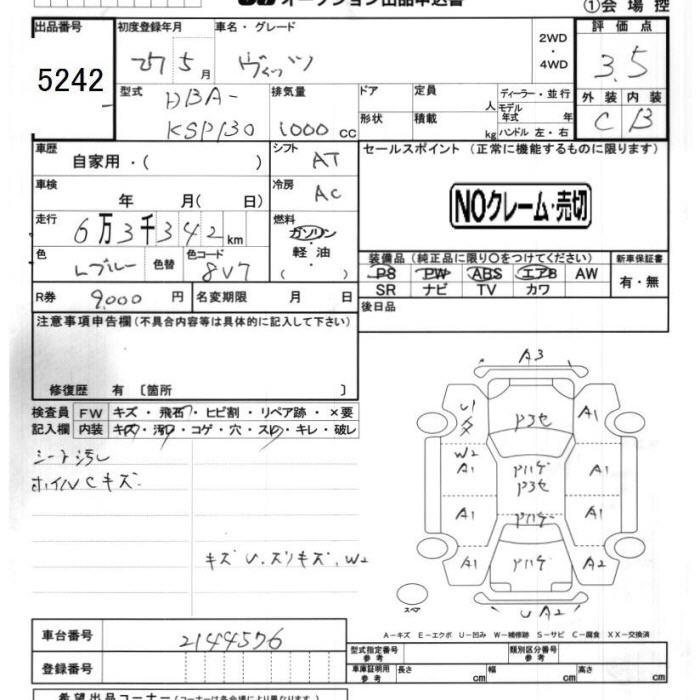 オークション出品申込書
①会場控
出品番号
5242
初度登録年月
27 5月
車名・グレード
ヴィッツ
2WD・4WD
評価点
3.5
外装 内装
C B
型式
DBA-
KSP130
排気量
1000 cc
ドア
形状
定員 人
積載 kg
ディーラー・並行
モデル年式 年
ハンドル 左・右
車歴
自家用・( )
シフト
AT
車検
年 月( 日)
冷房
AC
走行
6万3千342km
燃料
ガソリン
軽油
( )
色
Lブルー
色替
色コード
8V7
R券 9,000 円
名変期限 月 日
セールスポイント(正常に機能するものに限ります)
NOクレーム・売切
装備品(純正品に限り○をつけてください)
PS PW ABS エアB AW
SR ナビ TV カワ
新車保証書
有・無
後日品
注意事項申告欄(不具合内容等は具体的に記入して下さい)
修復歴 有〔箇所 〕
検査員記入欄
FW キズ・飛石・ヒビ割・リペア跡・×要
内装 キズ・汚れ・コゲ・穴・スレ・キレ・破レ
シート汚レ
ホイルCキズ
キズ U.スリキズ、W2
A3
U1
P3セ
A1
W2
A1
A1
P3セ
A1
A1
A1
A2
スペア
UA2
A-キズ E-エクボ U-凹み W-補修跡 S-サビ C-腐食 XX-交換済
車台番号
2144576
登録番号
型式指定番号
参考
類別区分番号
参考
車庫証明用
参考
長さ cm
幅 cm
高さ cm
希望出品コーナー(コーナーは各会場により異なります。)